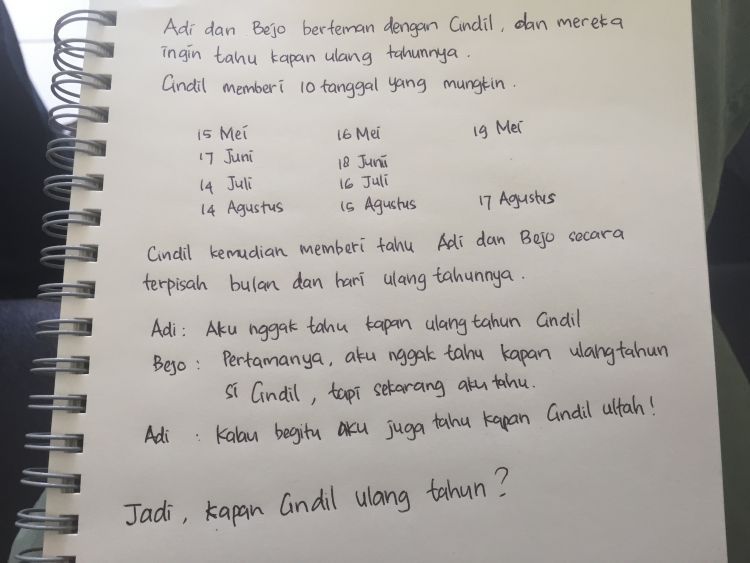 Adi dan Bejo berteman dengan Cindil, dan mereka
ingin tahu kapan ulang tahunnya.
Cindil memberi 10 tanggal yang mungkin.
15 Mei 16 Mei 19 Mei
17 Juni 18 Juni
14 Juli 16 Juli
14 Agustus 15 Agustus 17 Agustus
Cindil kemudian memberi tahu Adi dan Bejo secara
terpisah bulan dan hari ulang tahunnya.
Adi : Aku nggak tahu kapan ulang tahun Cindil
Bejo : Pertamanya, aku nggak tahu kapan ulang tahun
si Cindil, tapi sekarang aku tahu.
Adi : Kalau begitu aku juga tahu kapan Cindil ultah!
Jadi, kapan Cindil ulang tahun?